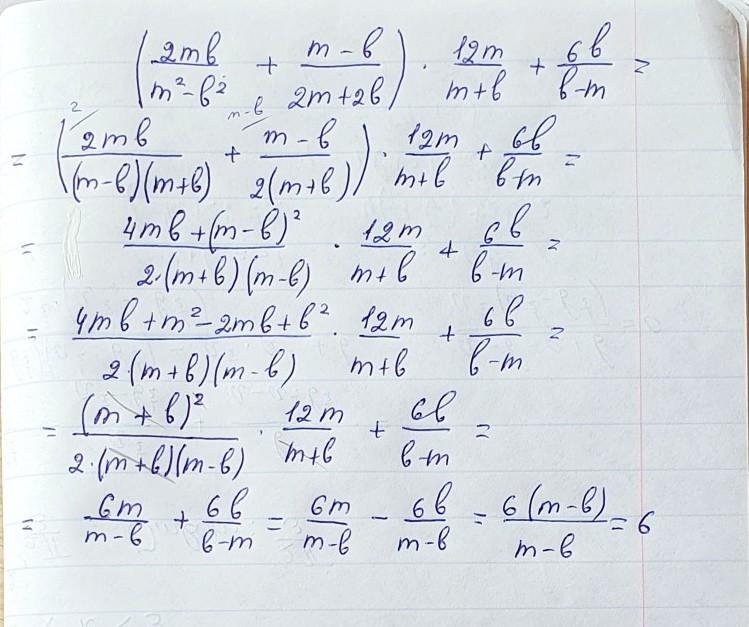 (2mb/(m²-b²) + (m-b)/(2m+2b)) · 12m/(m+b) + 6b/(b-m) =
= (2mb/((m-b)(m+b)) ² + (m-b)/(2(m+b)) ᵐ⁻ᵇ) · 12m/(m+b) + 6b/(b-m) =
= (4mb+(m-b)²)/(2·(m+b)(m-b)) · 12m/(m+b) + 6b/(b-m) =
= (4mb+m²-2mb+b²)/(2·(m+b)(m-b)) · 12m/(m+b) + 6b/(b-m) =
= (m+b)²/(2·(m+b)(m-b)) · 12m/(m+b) + 6b/(b-m) =
= 6m/(m-b) + 6b/(b-m) = 6m/(m-b) - 6b/(m-b) = 6(m-b)/(m-b) = 6